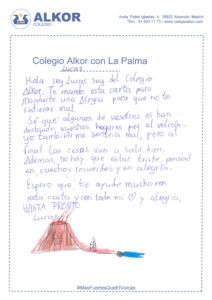 ALKOR
COLEGIO
Avda. Pablo Iglesias, 4 28922 Alcorcón. Madrid
Tfno.: 91 643 71 73 • www.colegioalkor.com
Colegio Alkor con La Palma
Lucas
Hola soy Lucas soy del Colegio
Alkor. Te mando esta carta para
mandarte una alegria para que no te
sientas mal
Sé que algunos de vosotros os han
destruido vuestros hogares por el volcán.
yo también me sentiria mal, pero al
final las cosas van a salir bien.
Además, no hay que estar triste, pensad
en vuestros recuerdos y en alegria.
Espero que te ayude mucho con
esta carta y con todo mi y alegria,
HASTA PRONTO
Lucas
#MásFuertesQueElVolcán